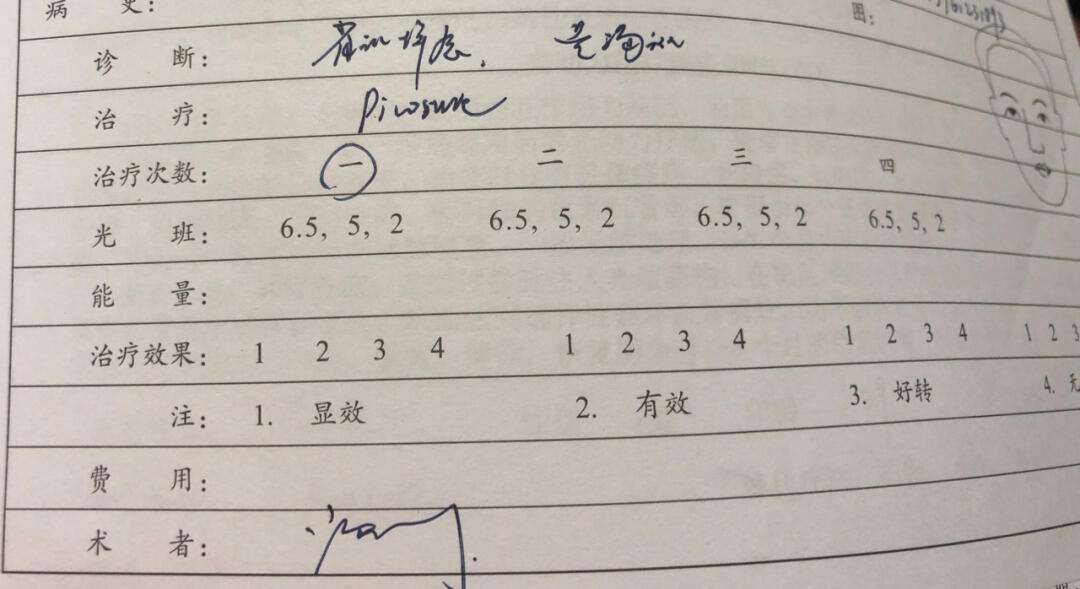 病 史:
图:
诊 断:
治 疗: Picosure
治疗次数: 一 二 三 四
光 班: 6.5, 5, 2 6.5, 5, 2 6.5, 5, 2 6.5, 5, 2
能 量:
治疗效果: 1 2 3 4 1 2 3 4 1 2 3 4 1 2 3
注: 1. 显效 2. 有效 3. 好转 4. 无
费 用:
术 者: